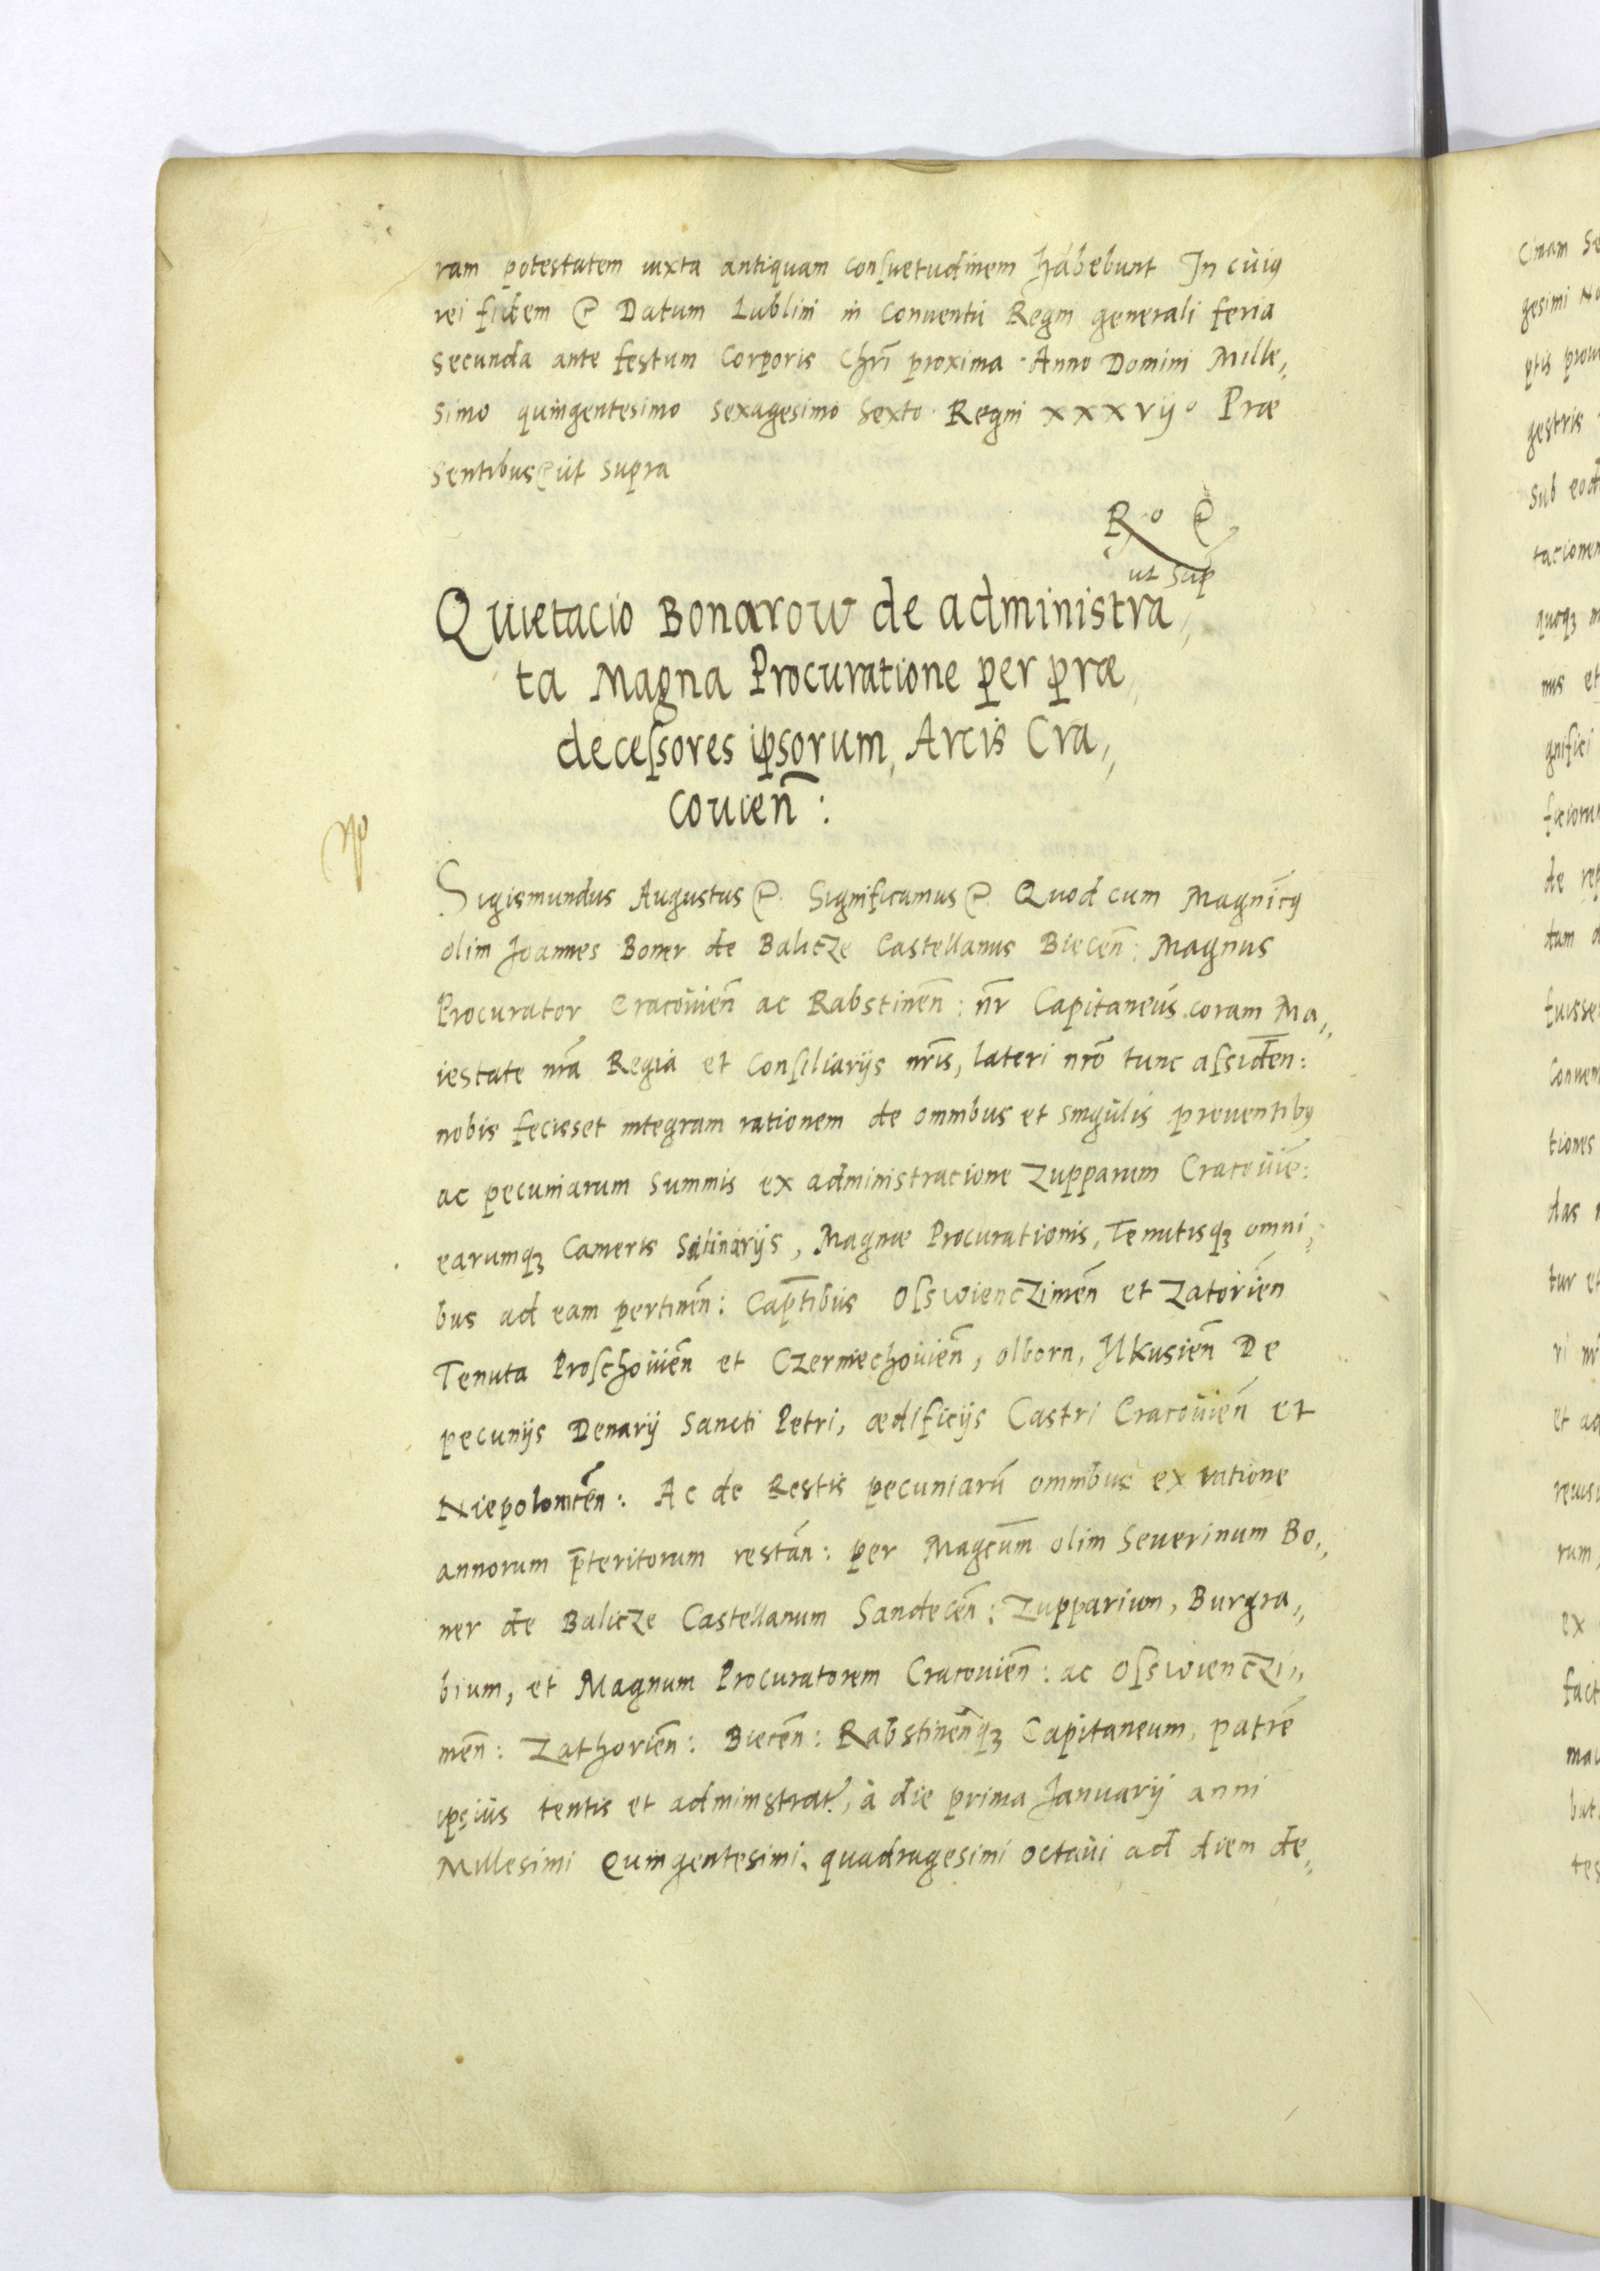 ram potestatem iuxta antiquam consuetudinem habebunt In cuiꝰ
rei fidem &c Datum Lublini in Conventu Regni generali feria
secunda ante festum Corporis Chrī proxima Anno Domini Mille„
simo quingentesimo sexagesimo sexto Regni xxxvij° Præ
sentibus &c ut supra
R° &c
ut sup
Quietacio Bonarow de administra„
ta Magna Procuratione per præ„
decessores ipsorum, Arcis Cra„
couien̄:
Sigismundus Augustus &c. Significamus &c. Quod cum Magnīcꝰ
olim Joannes Boner de Balicze Castellanus Biecen̄: Magnus
Procurator Cracouien̄ ac Rabstinen̄: nr̄ Capitaneus coram Ma„
iestate nrā Regia et Consiliarijs nrīs, lateri nrō tunc assiden̄:
nobis fecisset integram rationem de omnibus et singulis preventibꝰ
ac pecuniarum summis ex administracione Zupparum Cracouiē:
earumqꝫ Cameris Salinarijs, Magnæ Procurationis, Tenutisqꝫ omni„
bus ad eam pertinen̄: Capt̄ibus Osswienczimen̄ et Zatorien̄
Tenuta Proschouien̄ et Czerniechouien̄, olborn, Ilkusien̄ De
pecunijs Denarij Sancti Petri, ædificijs Castri Cracouien̄ et
Niepolomicen̄: Ac de Restis pecuniarū omnibus ex ratione
annorum p̄teritorum restān: per Magcūm olim Seuerinum Bo„
ner de Balicze Castellanum Sandecen̄: Zupparium, Burgra„
bium, et Magnum Procuratorem Cracouien̄: ac Osswienczi„
men̄: Zathorien̄: Biecen̄: Rabstinen̄qꝫ Capitaneum, patrē
ipsius tentis et administrat., à die prima Januarij anni
Millesimi Quingentesimi, quadragesimi octaui ad diem de„